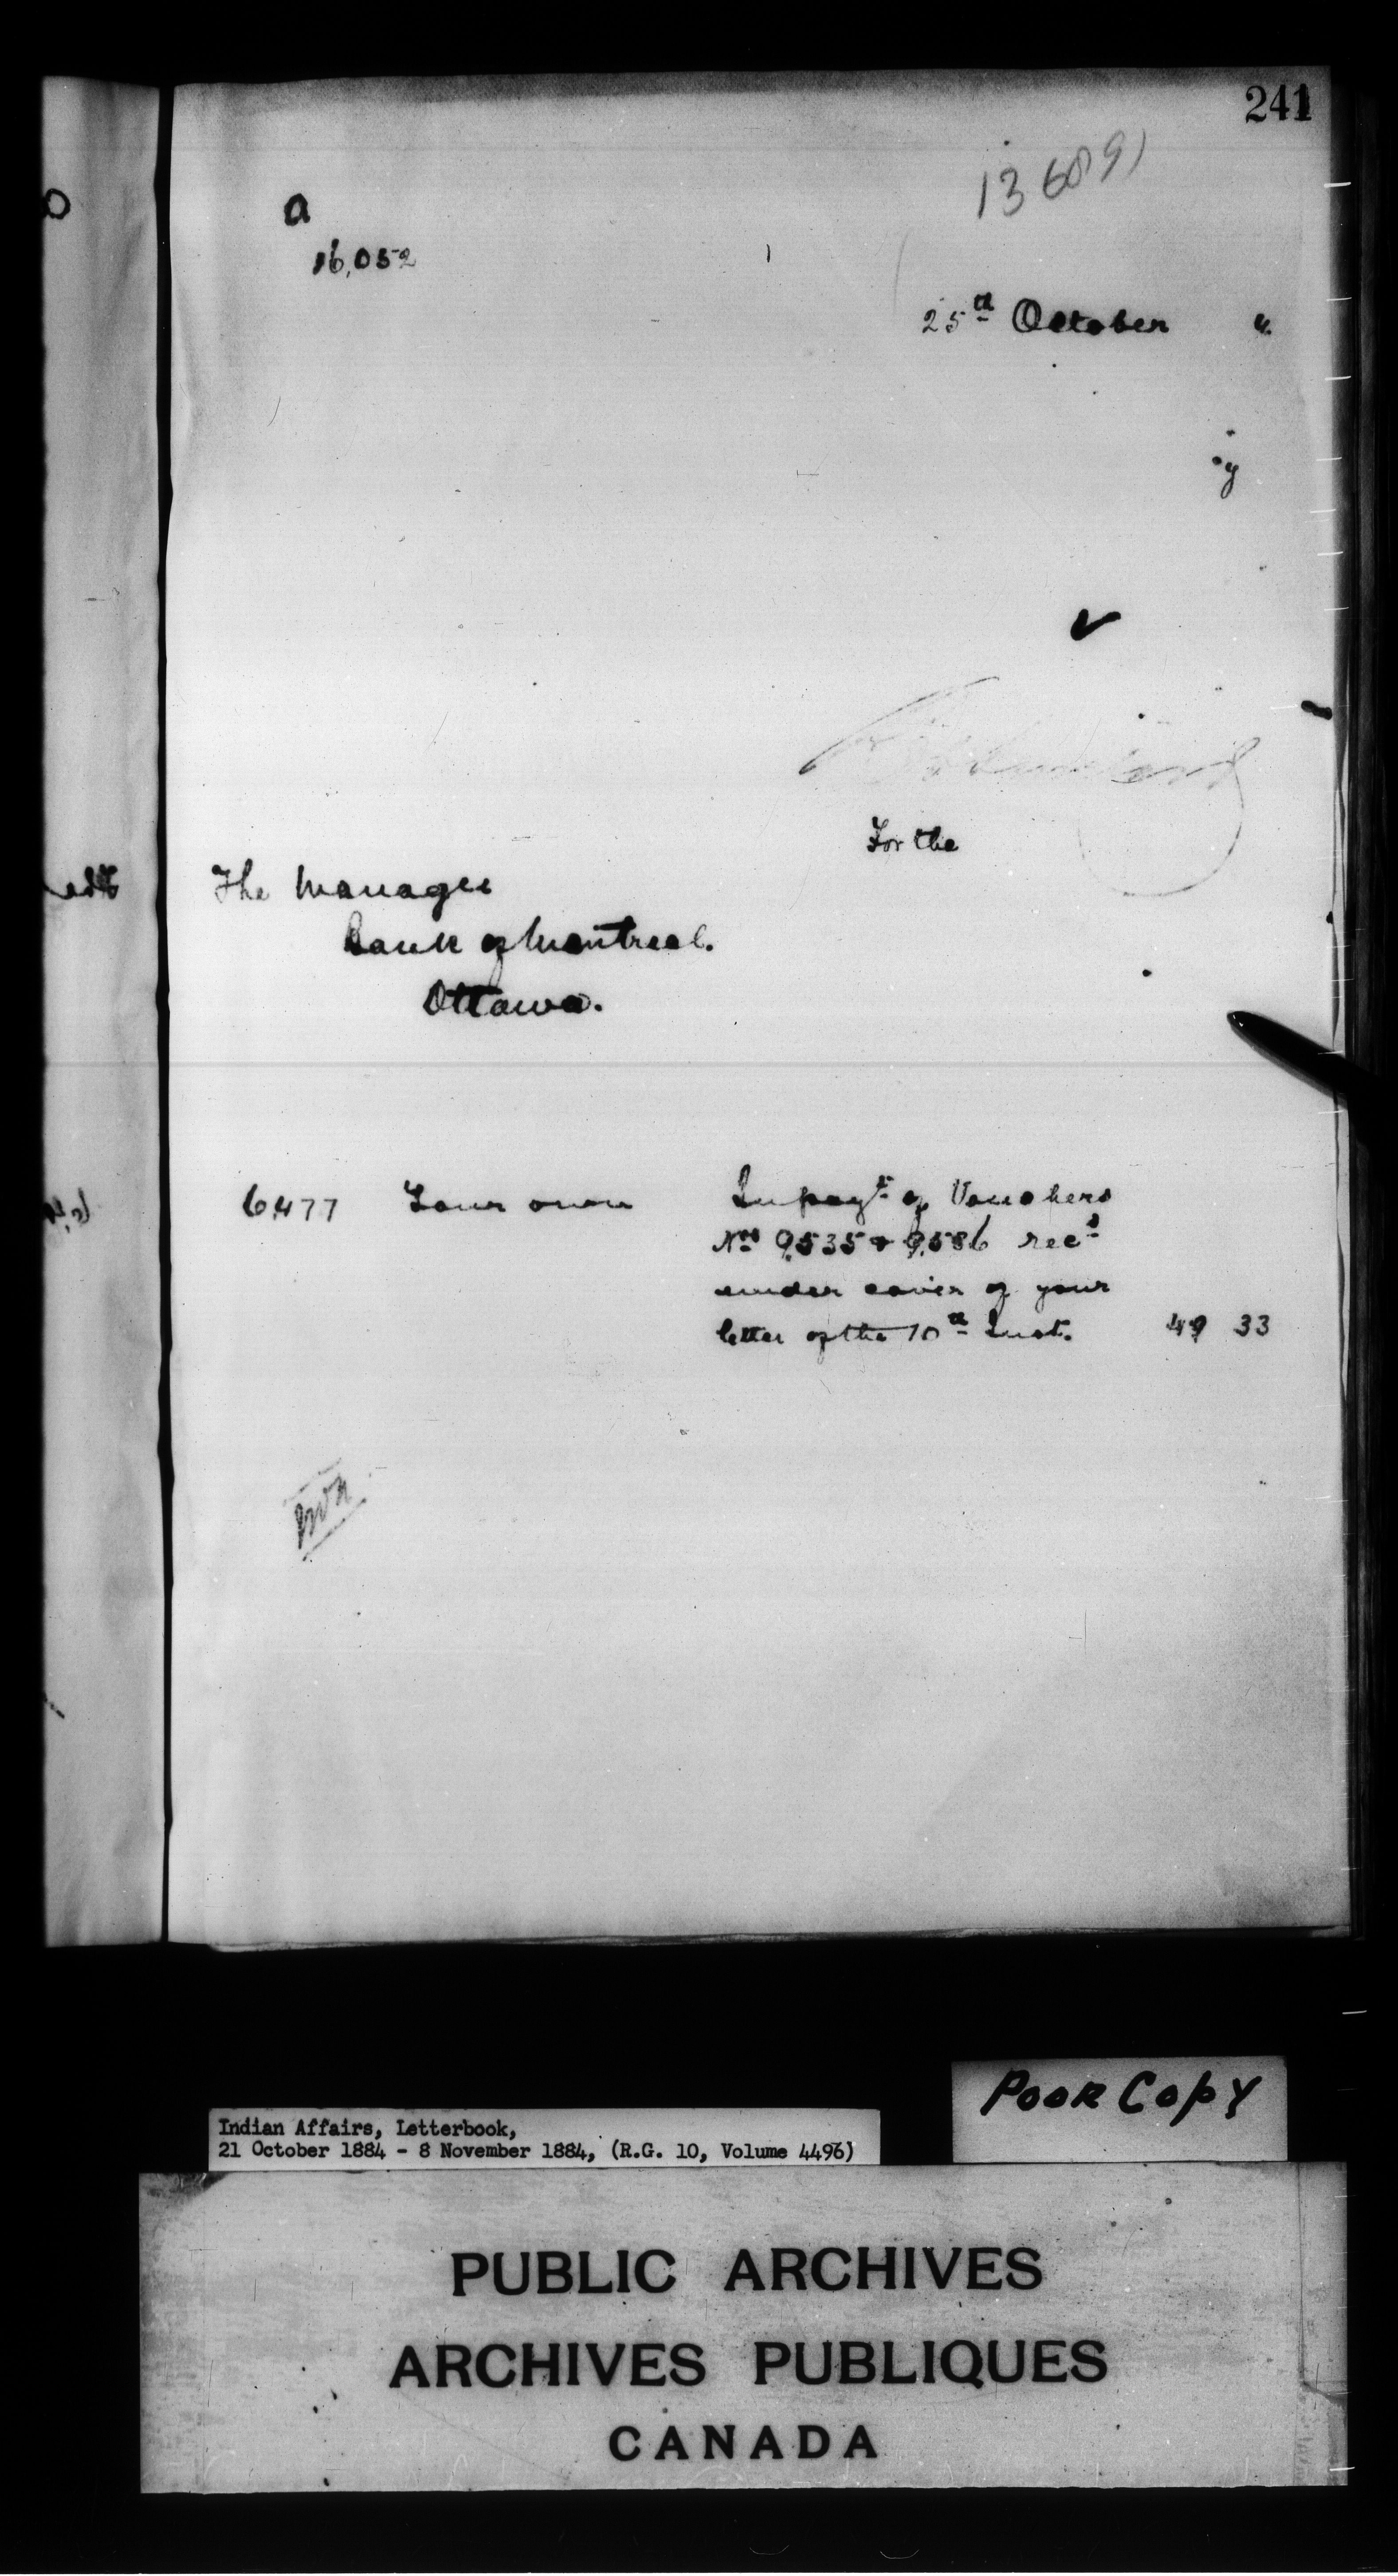 241
13689
a
16,052
25th October "
y
For the
The Manager
Bank of Montreal.
Ottawa.
6,477 Your own In payt of Vouchers
Nos 9,535 & 9,586 recd
under cover of your
letter of the 10th Inst. 49 33
Poor Copy
Indian Affairs, Letterbook,
21 October 1884 - 8 November 1884, (R.G. 10, Volume 4496)
PUBLIC ARCHIVES
ARCHIVES PUBLIQUES
CANADA